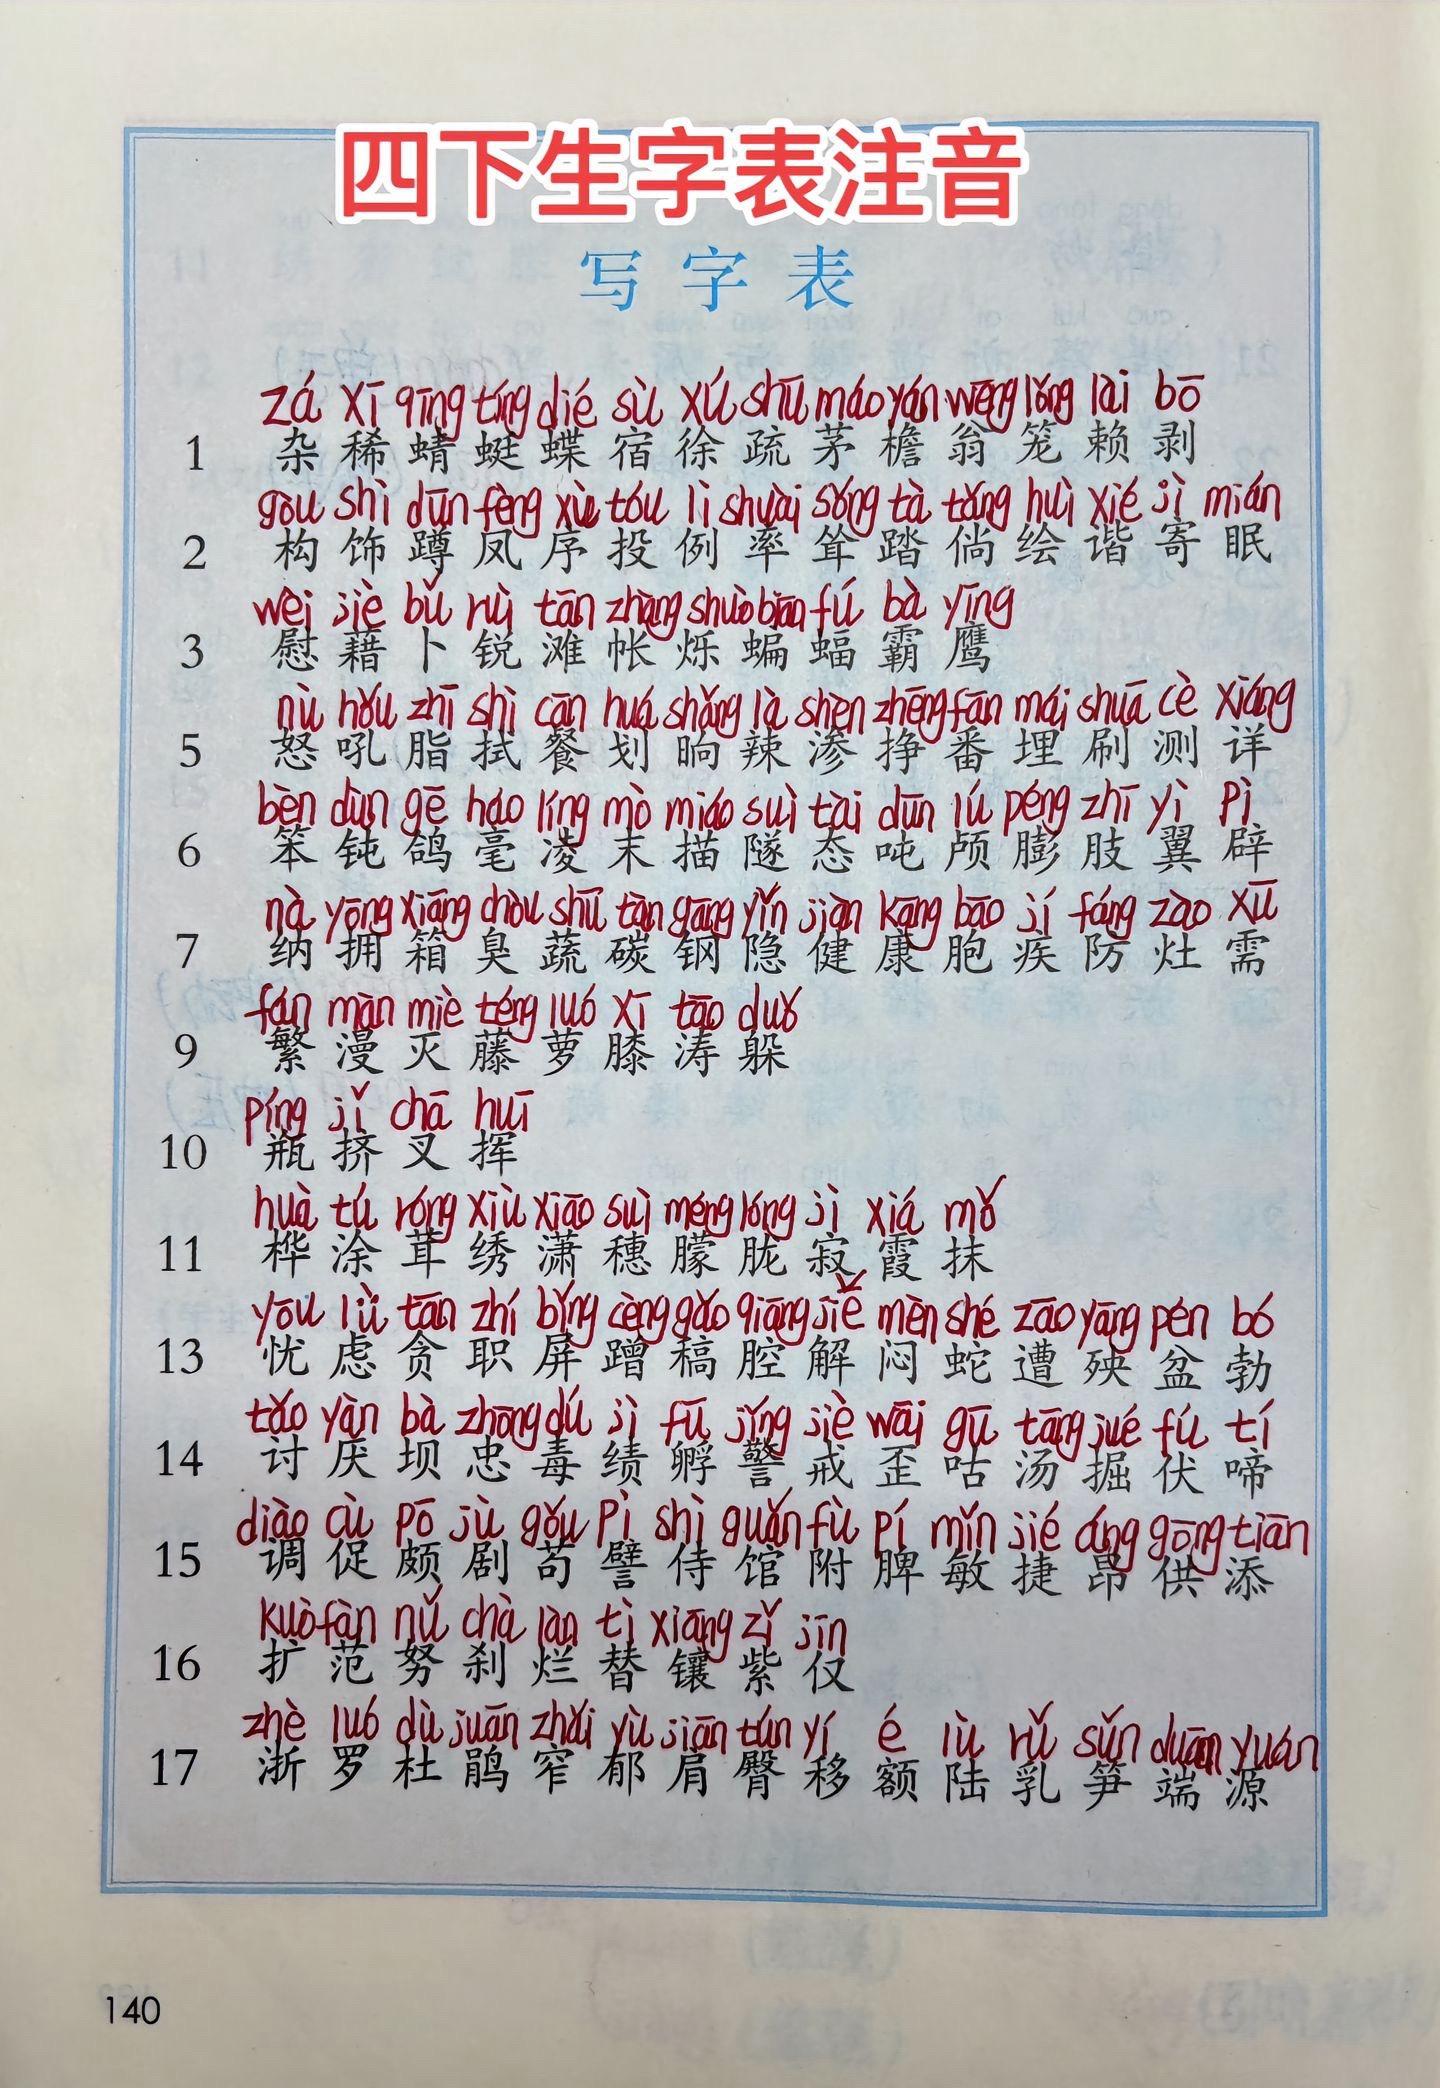 四下生字表注音
写字表
zá xī qīng tíng dié sù xú shū máo yán wēng lǒng lài bō
1 杂 稀 蜻 蜓 蝶 宿 徐 疏 茅 檐 翁 笼 赖 剥
gòu shì dūn fèng xù tóu lì shuài sǒng tà tǎng huì xié jì mián
2 构 饰 蹲 凤 序 投 例 率 耸 踏 倘 绘 谐 寄 眠
wèi jiè bǔ ruì tān zhàng shuò biān fú bà yīng
3 慰 藉 卜 锐 滩 帐 烁 蝙 蝠 霸 鹰
nù hǒu zhī shì cān huá shǎng là shèn zhēng fān mái shuā cè xiáng
5 怒 吼 脂 拭 餐 划 晌 辣 渗 挣 番 埋 刷 测 详
bèn dùn gē háo líng mò miáo suì tài dūn lú péng zhī yì pì
6 笨 钝 鸽 毫 凌 末 描 隧 态 吨 颅 膨 肢 翼 辟
nà yōng xiāng chòu shū tàn gāng yǐn jiàn kāng bāo jí fáng zào xū
7 纳 拥 箱 臭 蔬 碳 钢 隐 健 康 胞 疾 防 灶 需
fán màn miè téng luó xī tāo duǒ
9 繁 漫 灭 藤 萝 膝 涛 躲
píng jǐ chā huī
10 瓶 挤 叉 挥
huà tú róng xiù xiāo suì méng lóng jì xiá mǒ
11 桦 涂 茸 绣 潇 穗 朦 胧 寂 霞 抹
yōu lǜ tān zhí bǐng cèng gǎo qiāng jiě mèn shé zāo yāng pén bó
13 忧 虑 贪 职 屏 蹭 稿 腔 解 闷 蛇 遭 殃 盆 勃
tǎo yàn bà zhōng dú jì fū jǐng jiè wāi gū tāng jué fú tí
14 讨 厌 坝 忠 毒 绩 孵 警 戒 歪 咕 汤 掘 伏 啼
diào cù pō jù gǒu pì shì guǎn fù pí mǐn jié áng gōng tiān
15 调 促 颇 剧 苟 譬 侍 馆 附 脾 敏 捷 昂 供 添
kuò fàn nǔ chà làn tì xiāng zǐ jīn
16 扩 范 努 刹 烂 替 镶 紫 仅
zhè luó dù juān zhǎi yù jiān tún yí é lù rǔ sǔn duān yuán
17 浙 罗 杜 鹃 窄 郁 肩 臀 移 额 陆 乳 笋 端 源
140